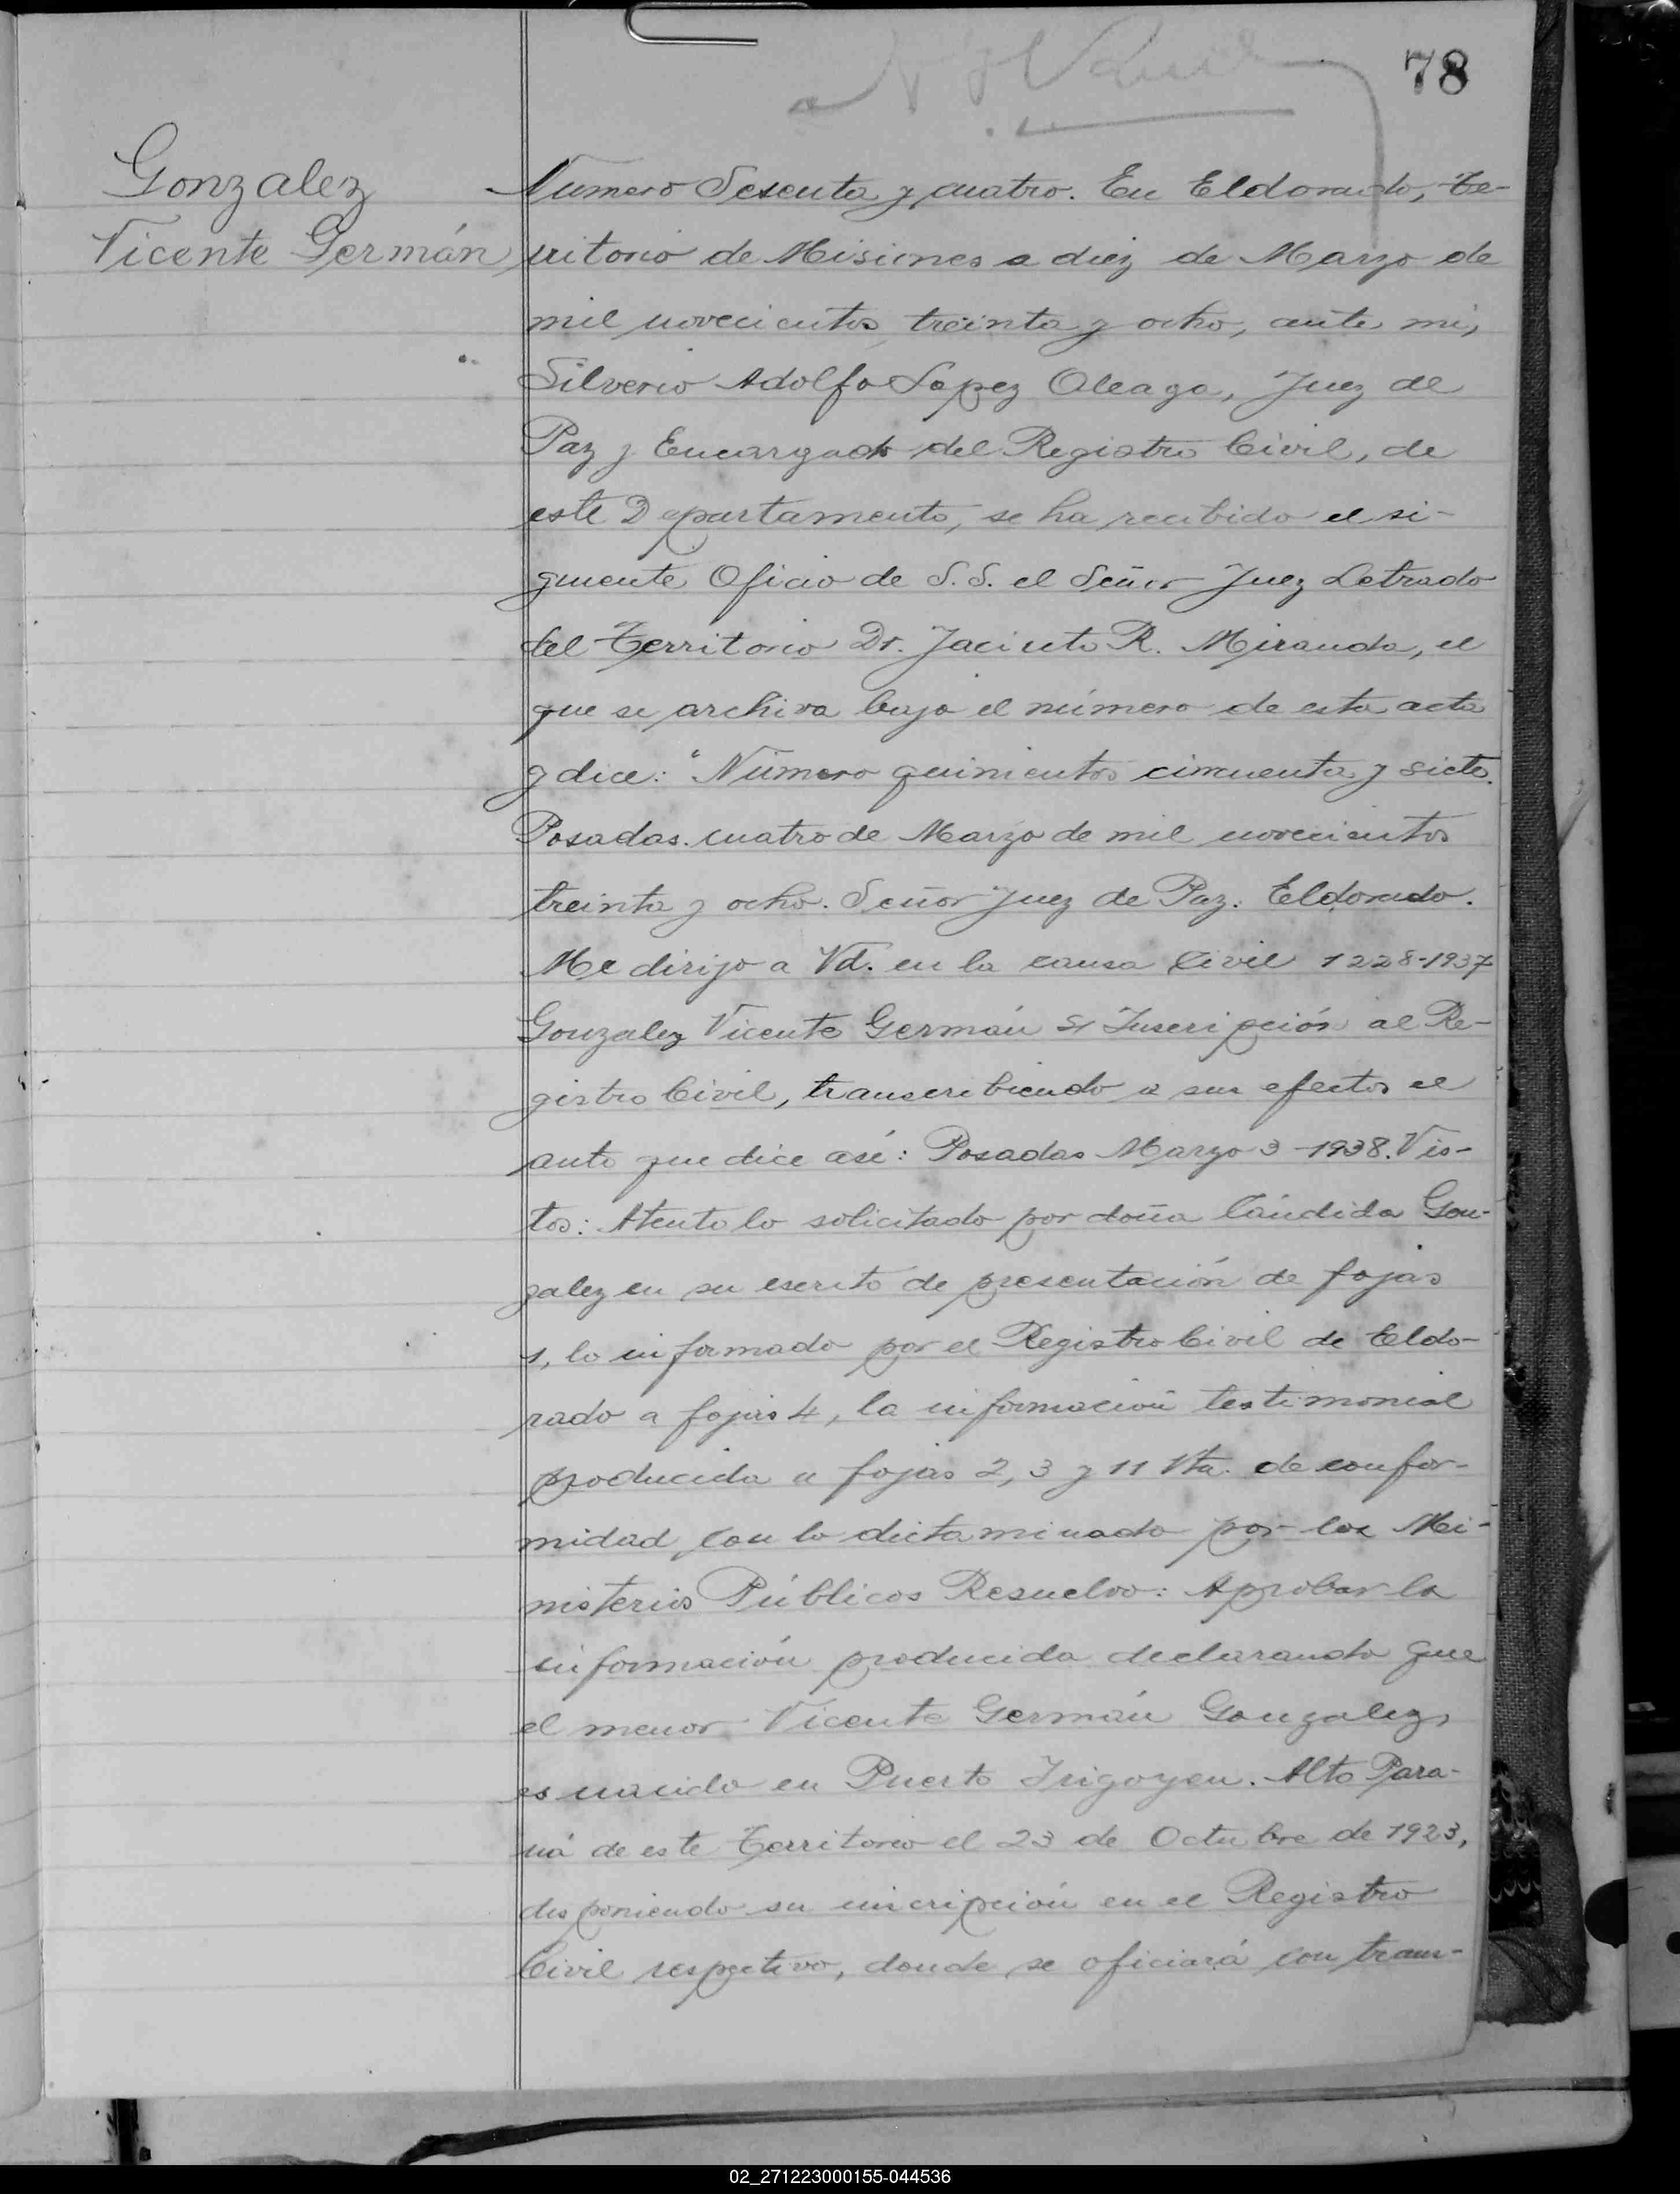 78
Gonzalez
Vicente Germán
Número Sesenta y cuatro. En Eldorado, Te-
rritorio de Misiones a diez de Marzo de
mil novecientos treinta y ocho, ante mi,
Silverio Adolfo Lopez Oleaga, Juez de
Paz y Encargado del Registro Civil, de
este Departamento, se ha recibido el si-
guiente Oficio de S.S. el Señor Juez Letrado
del Territorio Dr. Jacinto R. Miranda, el
que se archiva bajo el número de esta acta
y dice: "Número quinientos cincuenta y siete.
Posadas. cuatro de Marzo de mil novecientos
treinta y ocho. Señor Juez de Paz. Eldorado.
Me dirijo a Vd. en la causa Civil 1228-1937
Gonzalez Vicente Germán S/ Inscripción al Re-
gistro Civil, transcribiendo a sus efectos el
auto que dice asi: Posadas Marzo 3-1938. Vis-
tos: Atento lo solicitado por doña Cándida Gon-
zalez en su escrito de presentación de fojas
1, lo informado por el Registro Civil de Eldo-
rado a fojas 4, la información testimonial
producida a fojas 2, 3 y 11 Vta. de confor-
midad con lo dictaminado por los Mi-
nisterios Públicos Resuelvo: Aprobar la
información producida declarando que
el menor Vicente Germán Gonzalez,
es nacido en Puerto Irigoyen. Alto Para-
ná de este Territorio el 23 de Octubre de 1923,
disponiendo su inscripción en el Registro
Civil respectivo, donde se oficiará con trans-
02_271223000155-044536